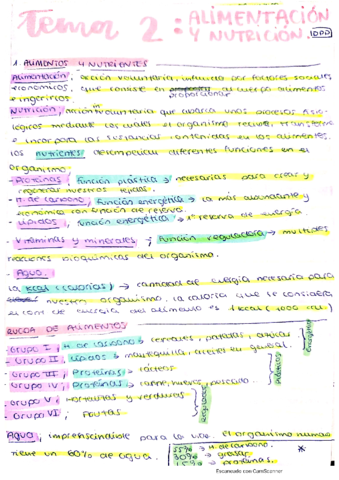 Tema 2: ALIMENTACIÓN
Y NUTRICIÓN.
1. ALIMENTOS Y NUTRIENTES
Alimentación: acción voluntaria, influida por factores sociales
económicos, que consiste en proporcionar al cuerpo alimentos
e ingerirlos.
Nutrición, acción involuntaria que abarca unos procesos fisio-
lógicos mediante los cuales el organismo recibe, transforma
e incorpora las sustancias contenidas en los alimentos.
Los nutrientes desempeñan diferentes funciones en el
organismo:
- Proteínas; función plástica → necesarias para crear y
regenerar nuestros tejidos.
- H. de carbono; función energética → la más abundante y
económica con función de reserva.
- Lípidos; función energética → 1ª reserva de energía.
- Vitaminas y minerales; función reguladora → múltiples
reacciones bioquímicas del organismo.
- Agua.
La Kcal (calorías) → cantidad de energía necesaria para
nuestro organismo. La caloría que se considera
el cont de energía del alimento es 1 kcal (1000 cal)
RUEDA DE ALIMENTOS
- Grupo I; H de carbono → cereales, patatas, azúcar
- Grupo II; Lípidos → mantequilla, aceites en general.
Energéticos
- Grupo III; Proteínas → lácteos
- Grupo IV; Proteínas → carne, huevos, pescado.
Plásticos
- Grupo V; Hortalizas y verduras
- Grupo VI; Frutas
Reguladores
Agua, imprescindible para la vida. El organismo humano
tiene un 60% de agua.
55% → H de carbono
30% → grasas
15% → proteínas.
*
Escaneado con CamScanner